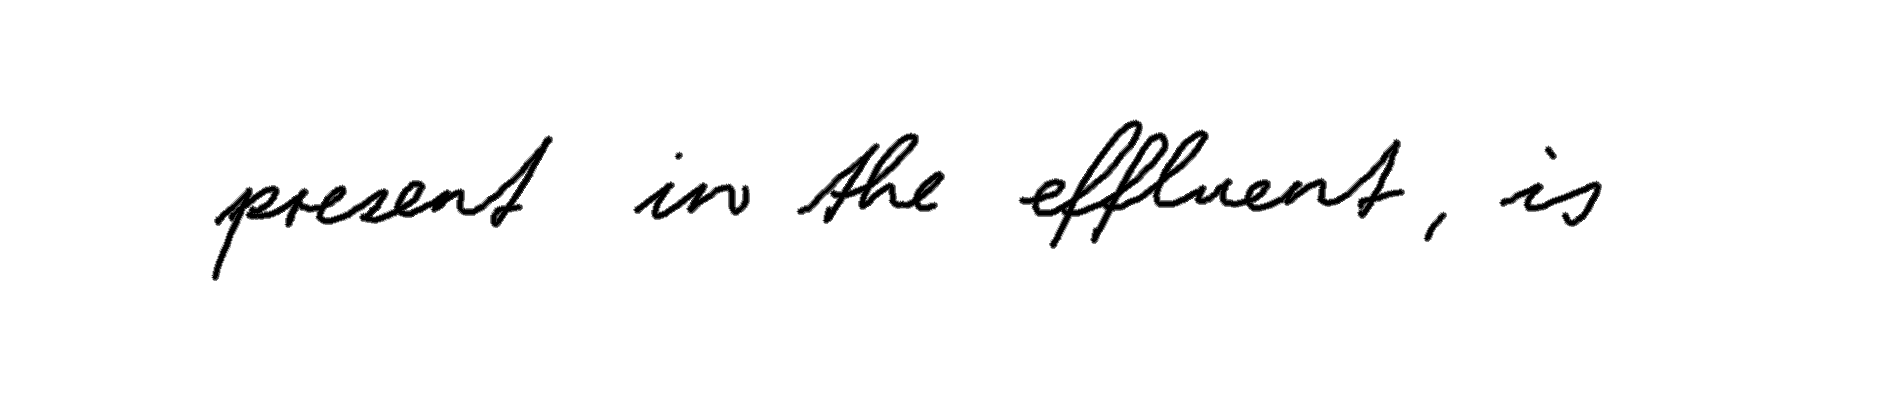 present in the effluent, is